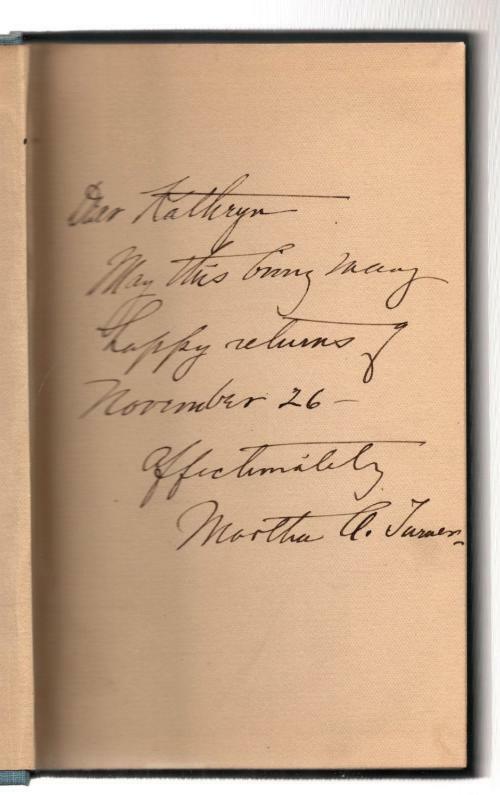 Dear Kathryn
May this bring many
happy returns of
November 26 –
Affectionately
Martha A. Turner